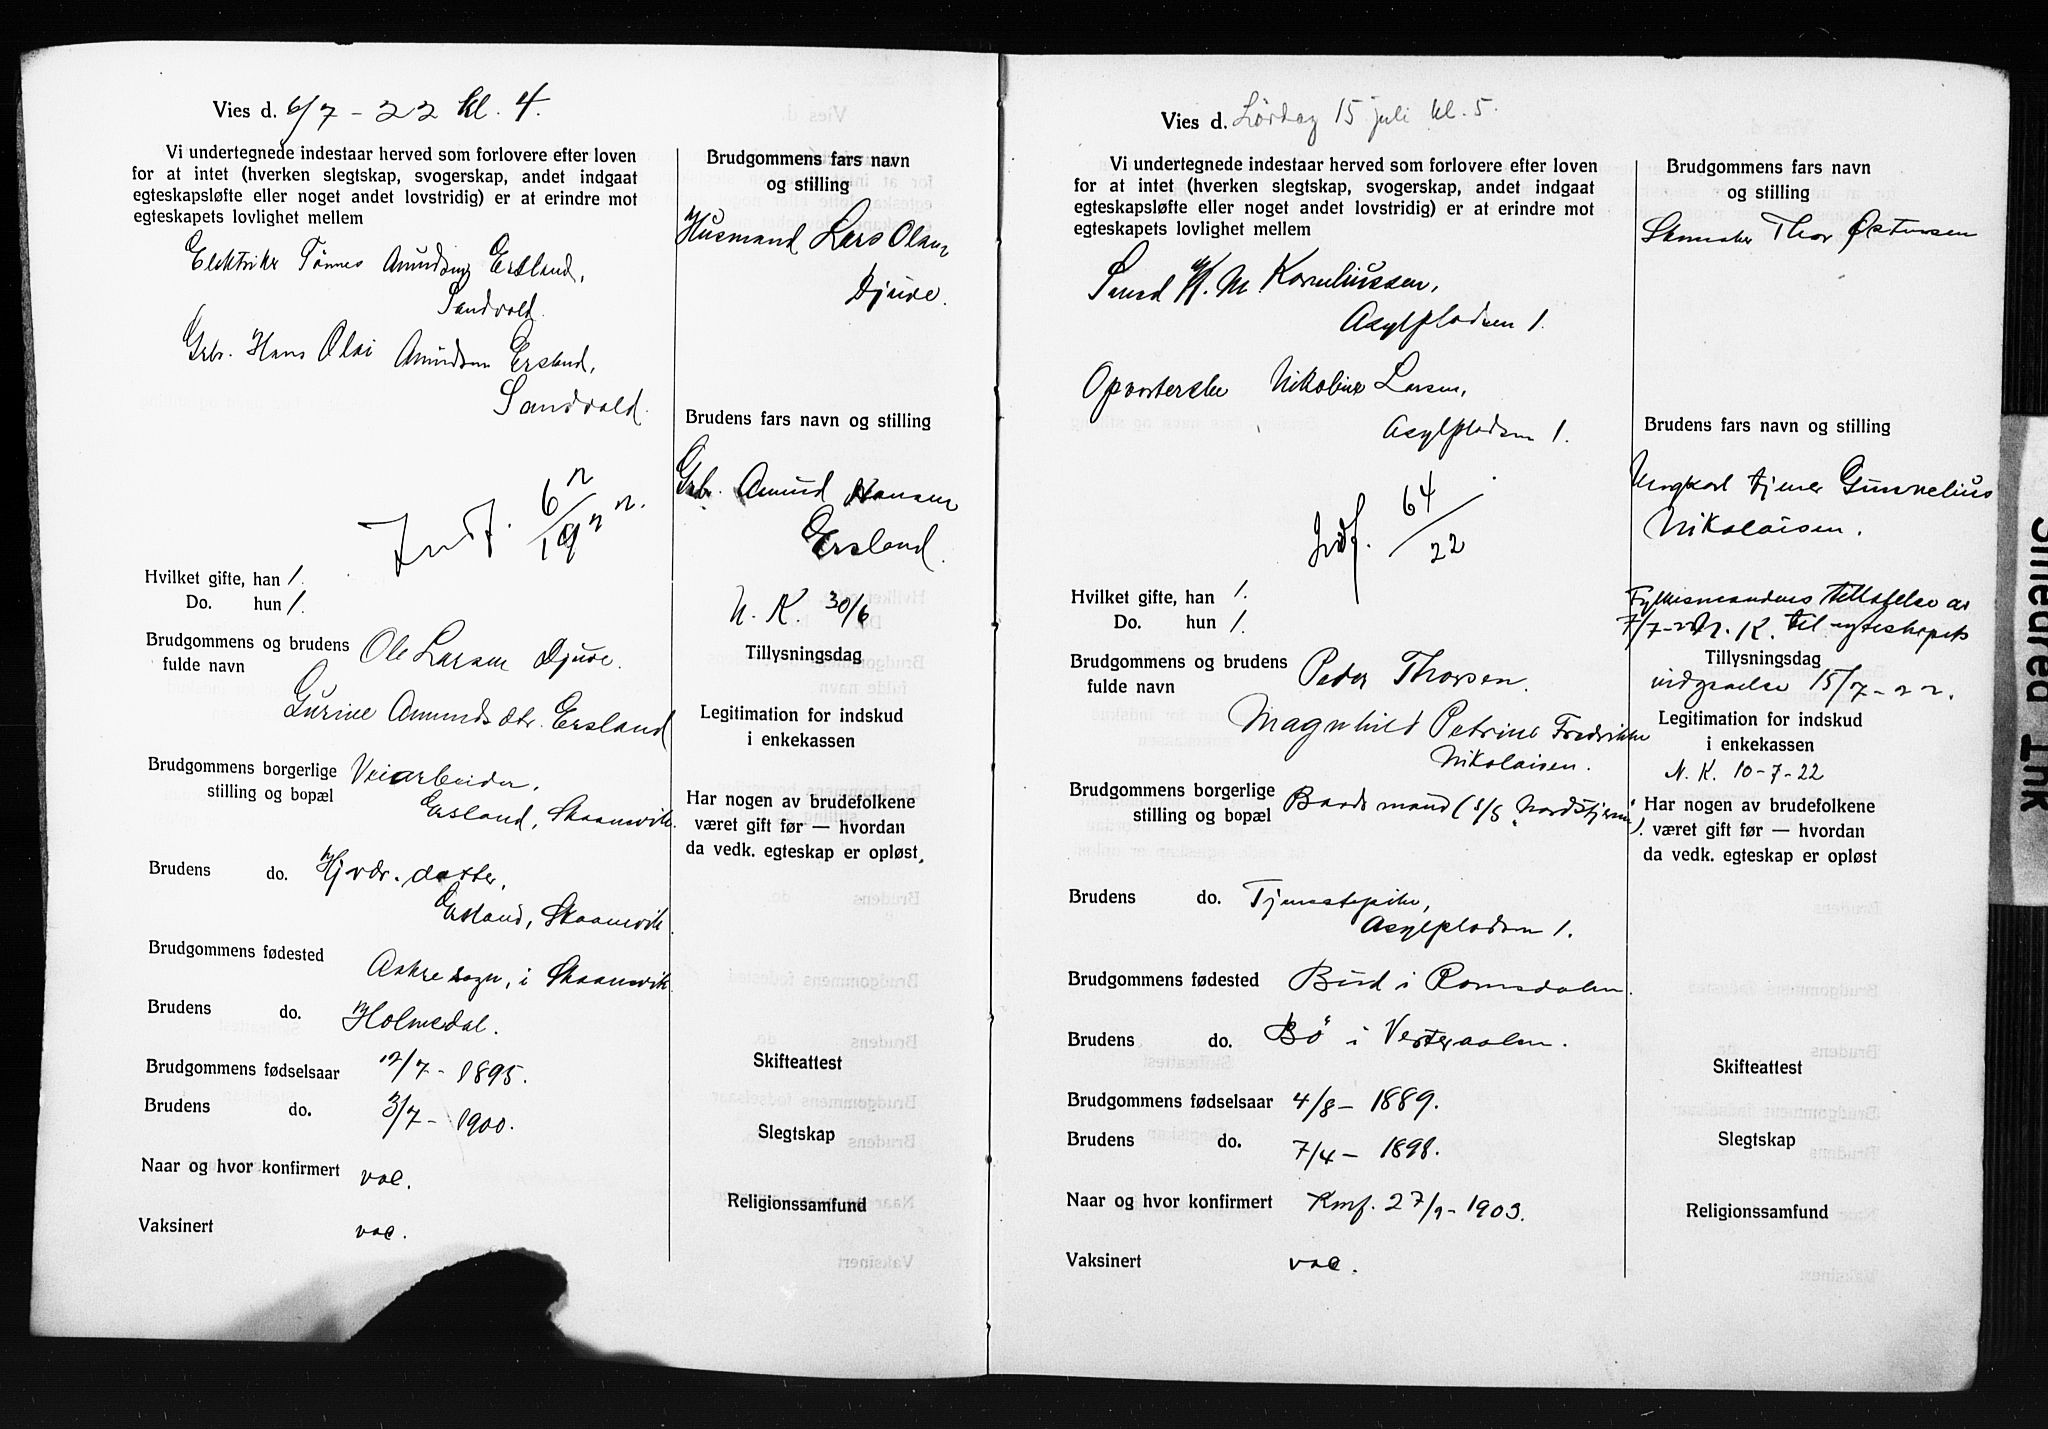 Vies d. 6/7 - 22 kl. 4.
Vi undertegnede indestaar herved som forlovere efter loven
for at intet (hverken slegtskap, svogerskap, andet indgaat
egteskapsløfte eller noget andet lovstridig) er at erindre mot
egteskapets lovlighet mellem
Elektriker Tønnes Amundsen Ersland,
Sandvold.
Grbr. Hans Olai Amundsen Ersland,
Sandvold.
Indf. 6/1922.
Hvilket gifte, han 1.
Do. hun 1.
Brudgommens og brudens Ole Larsen Djuve.
fulde navn
Gurine Amundsdtr. Ersland
Brudgommens borgerlige Veiarbeider,
stilling og bopæl Ersland, Skaanevik.
Brudens do. Hjvær. datter,
Ersland, Skaanevik.
Brudgommens fødested
Aakre sogn, i Skaanevik
Brudens do. Holmedal.
Brudgommens fødselsaar 12/7 - 1895.
Brudens do. 3/7 - 1900.
Naar og hvor konfirmert vac.
Vaksinert vac.
Brudgommens fars navn
og stilling
Husmand Lars Olsen
Djuve.
Brudens fars navn og stilling
Grb. Amund Hansen
Ersland.
N. K. 30/6
Tillysningsdag
Legitimation for indskud
i enkekassen
Har nogen av brudefolkene
været gift før — hvordan
da vedk. egteskap er opløst.
Skifteattest
Slegtskap
Religionssamfund
Vies d. Lördag 15 juli kl. 5.
Vi undertegnede indestaar herved som forlovere efter loven
for at intet (hverken slegtskap, svogerskap, andet indgaat
egteskapsløfte eller noget andet lovstridig) er at erindre mot
egteskapets lovlighet mellem
Smed H. M. Korneliussen,
Asylpladsen 1.
Opvarterske Nikoline Larsen,
Asylpladsen 1.
Indf. 64/22
Hvilket gifte, han 1.
Do. hun 1.
Brudgommens og brudens Peder Thorsen.
fulde navn
Magnhild Petrine Fredrikke
Nikolaisen.
Brudgommens borgerlige Baadsmand (s/s "Nordstjernen").
stilling og bopæl
Brudens do. Tjenestepike,
Asylpladsen 1.
Brudgommens fødested Bud i Romsdalen.
Brudens do. Bö i Vesteraalen.
Brudgommens fødselsaar 4/8 - 1889.
Brudens do. 7/4 - 1898.
Naar og hvor konfirmert Knf. 27/9 - 1903.
Vaksinert vac.
Brudgommens fars navn
og stilling
Skomaker Thor Østensen
Brudens fars navn og stilling
Ungkarl tjener Gunnelius
Nikolaisen.
Fylkesmandens tillatelse av
7/7-22 N. K. til egteskapets
Tillysningsdag
indgaaelse 15/7 - 22.
Legitimation for indskud
i enkekassen
N. K. 10-7-22
Har nogen av brudefolkene
været gift før — hvordan
da vedk. egteskap er opløst
Skifteattest
Slegtskap
Religionssamfund